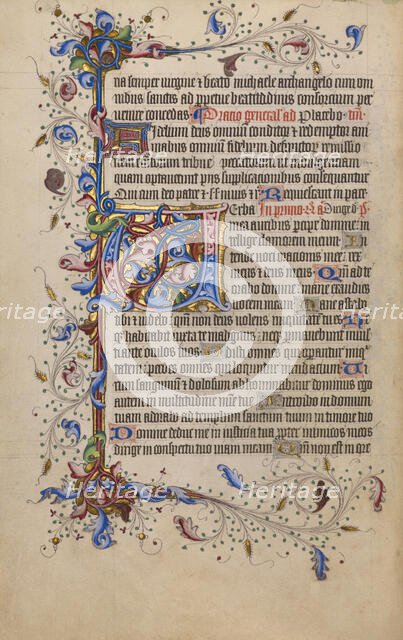 na semper virgine et beato michaele archangelo cum om
nibus sanctis ad perpetue beatitudinis consorcium per
venire concedas Oracio generalis ad Placebo
idelium deus omnium conditor et redemptor am
mabus omnium fidelium defunctorum remissio
nem cunctorum tribue peccatorum ut indulgenciam
quam optaverunt piis supplicacionibus consequantur
Qui cum deo patre et Requiescant in pace
Erba In primo
mea auribus percipe domine in
tellige clamorem meum In
tende voci oracionis mee
rex meus et deus meus Qm ad te
orabo domine mane exaudies
vocem meam ane asta
bo tibi et videbo qm non deus volens iniquitate tu es
habitabit iuxta te malignus
ante oculos tuos disti omnes qui operantur iniqui
tatem perdes omnes qui loquuntur mendacium Vi
rum sanguinum et dolosum abhominabitur dominus ego
autem in multitudine mie tue Introibo in domum
tuam adorabo ad templum sanctum tuum in timore tuo
Domine deduc me in iusticia tua propter inimicos meos
dirige in conspectu tuo viam meam Qm non est in ore
Heritage
Heritage
Heritage
Heritage
Heritage
Heritage